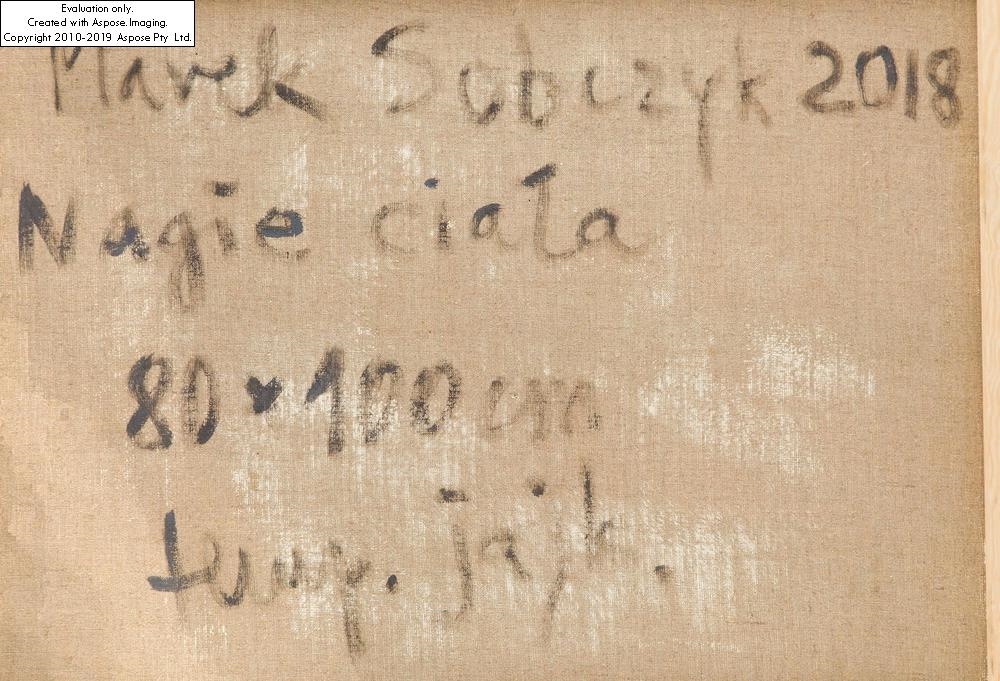 Evaluation only.
Created with Aspose.Imaging.
Copyright 2010-2019 Aspose Pty Ltd.
Marek Sobczyk 2018
Nagie ciała
80 x 100 cm
temp. jajk.